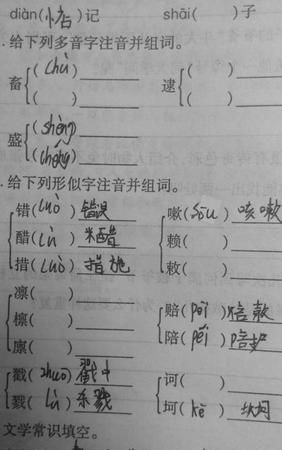 diàn(惦)记 shāi( )子
.给下列多音字注音并组词。
畜(chù) 逮( )
( ) ( )
盛(shèng)
(chéng)
.给下列形似字注音并组词。
错(cuò) 错误 嗽(sòu) 咳嗽
醋(cù) 米醋 赖( )
措(cuò) 措施 敕( )
凛( )
檩( ) 赔(péi) 赔款
廪( ) 陪(péi) 陪护
戳(zhuo) 戳中 诃( )
戮(lù) 杀戮 坷(kě) 坎坷
文学常识填空。